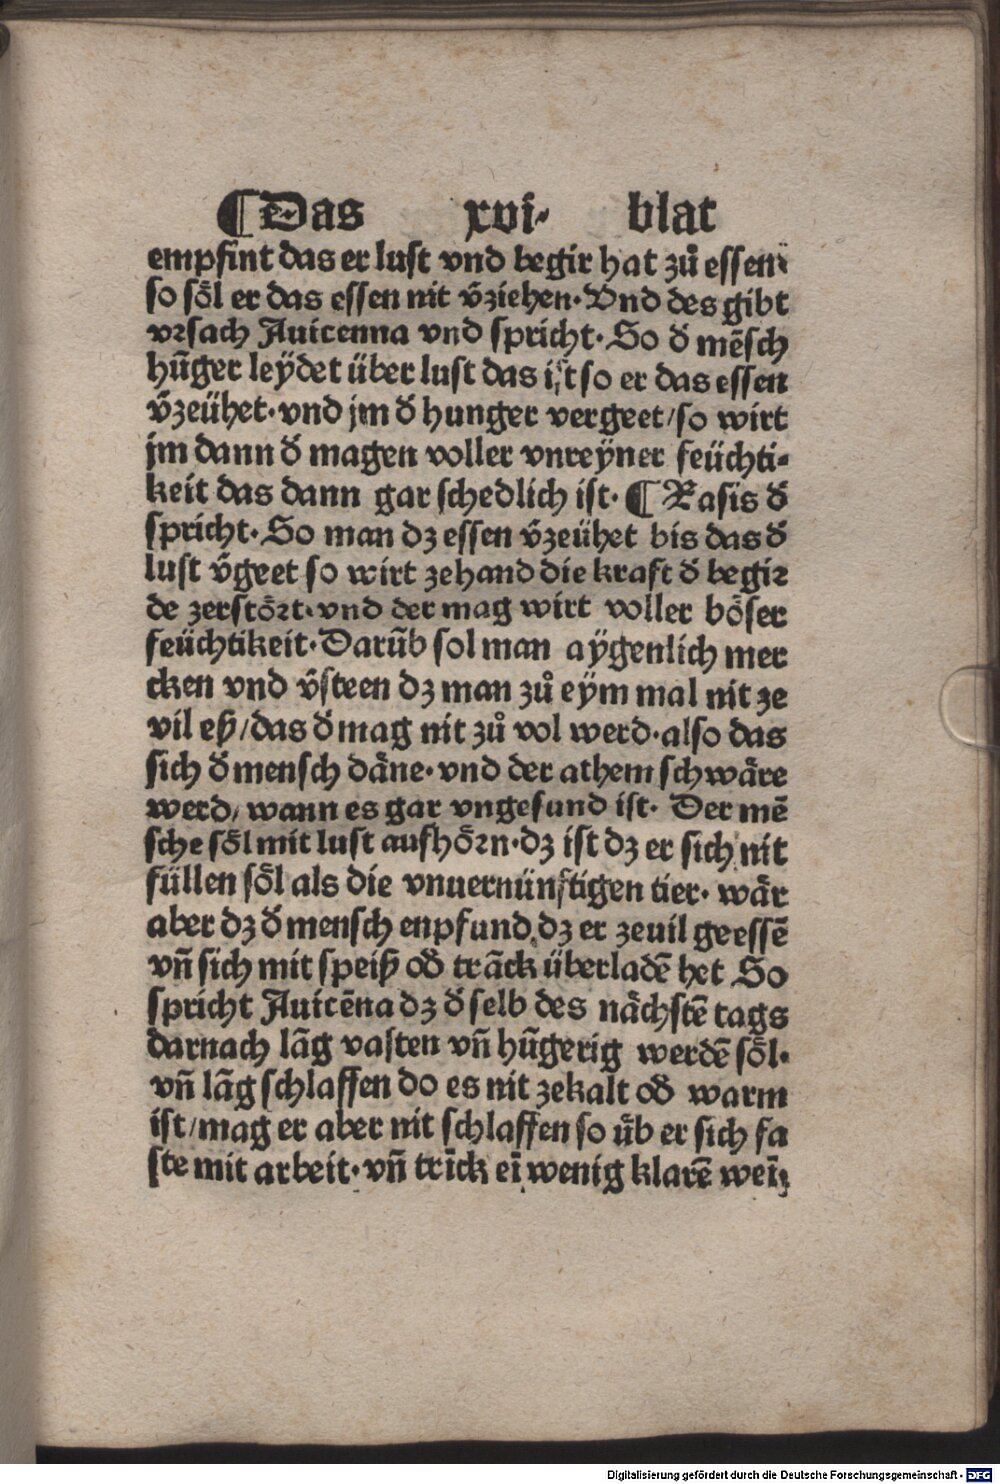 ¶ Das xvi· blat
empfint das er lust vnd begir hat zů essen
so sȯl er das essen nit v̄ziehen· Vnd des gibt
vrsach Auicenna vnd spricht· So d̄ mēsch
hūger leÿdet über lust das ist so er das essen
v̄zeühet· vnd jm d̄ hunger vergeet/ so wirt
jm dann d̄ magen voller vnreÿner feüchti⸗
keit das dann gar schedlich ist· ¶ Rasis d̄
spricht· So man dz essen v̄zeühet bis das d̄
lust v̄geet so wirt zehand die kraft d̄ begir
de zerstört· vnd der mag wirt voller böser
feüchtikeit· Darūb sol man aÿgenlich mer
cken vnd v̄steen dz man zů eÿm mal nit ze
vil eß/ das d̄ mag nit zů vol werd· also das
sich d̄ mensch däne· vnd der athem schwäre
werd/ wann es gar vngesund ist· Der mē
sche söl mit lust aufhörn· dz ist dz er sich nit
füllen söl als die vnuernünftigen tier· wär
aber dz d̄ mensch enpfund, dz er zeuil geessē
vn̄ sich mit speiß od̄ trāck überladē het So
spricht Auicēna dz d̄ selb des nächstē tags
darnach lāg vasten vn̄ hūgerig werdē söl·
vn̄ lāg schlaffen do es nit zekalt od̄ warm
ist/ mag er aber nit schlaffen so üb er sich fa
ste mit arbeit· vn̄ trīck eī wenig klarē weī
Digitalisierung gefördert durch die Deutsche Forschungsgemeinschaft - DFG